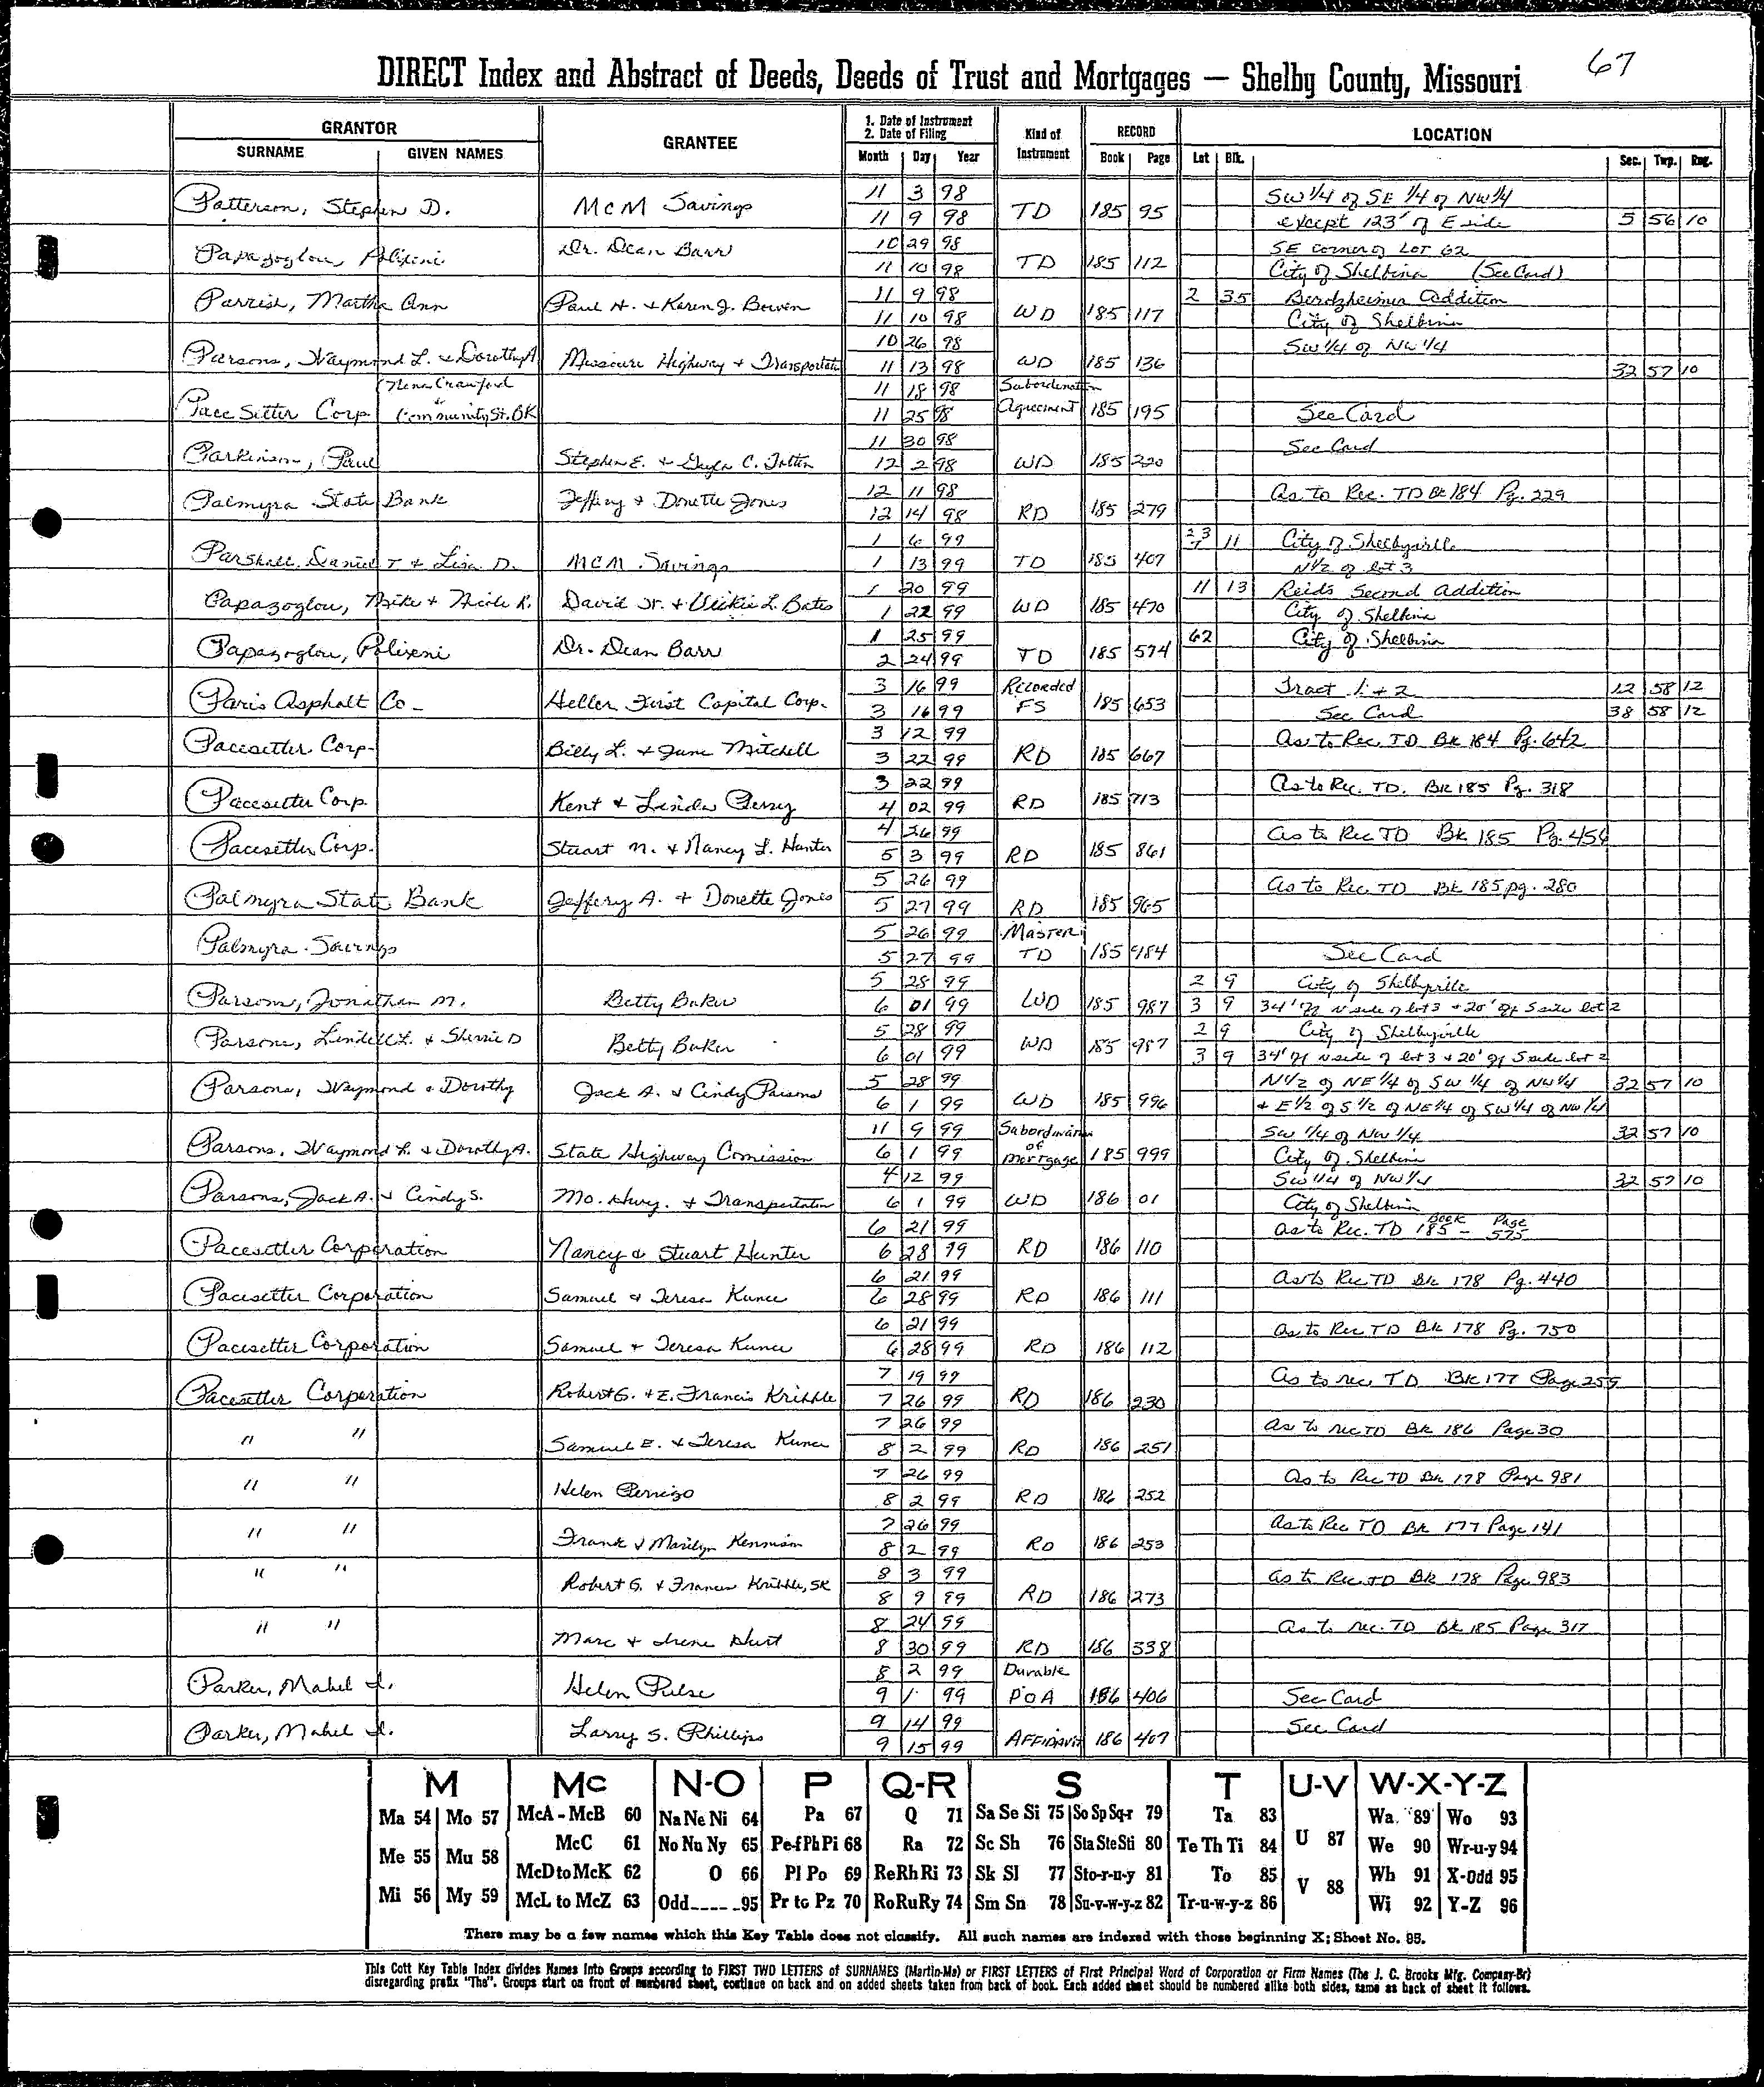 67
DIRECT Index and Abstract of Deeds, Deeds of Trust and Mortgages — Shelby County, Missouri
GRANTOR
SURNAME GIVEN NAMES
GRANTEE
1. Date of Instrument
2. Date of Filing
Month Day Year
Kind of Instrument
RECORD
Book Page
LOCATION
Lot Blk. Sec. Twp. Rng.
Patterson, Stephen D. MCM Savings 11 3 98 TD 185 95 SW 1/4 of SE 1/4 of NW 1/4
11 9 98 except 123' of E side 5 56 10
Papazoglou, Polixeni Dr. Dean Barr 10 29 98 TD 185 112 SE corner of LOT 62
11 10 98 City of Shelbina (See Card)
Parrish, Martha Ann Paul H. & Karen J. Bowen 11 9 98 WD 185 117 2 35 Berdzheimer Addition
11 10 98 City of Shelbina
Parsons, Waymond L. & Dorothy A. Missouri Highway & Transportation 10 26 98 WD 185 136 SW 1/4 of NW 1/4
11 13 98 32 57 10
Pace Setter Corp. Crawford & Community St. BK 11 18 98 Subordination
11 25 98 Agreement 185 195 See Card
Parkinson, Paul Stephen E. & C. Totten 11 30 98 WD 185 220 See Card
12 2 98
Palmyra State Bank Jeffrey & Donette Jones 12 11 98 RD 185 279 As to Rec. TD Bk 184 Pg. 229
12 14 98
Parshall, Daniel T & Lisa D. MCM Savings 1 6 99 TD 185 407 11 City of Shelbyville
1 13 99 N1/2 of lot 3
Papazoglou, Mike & Nicole R. David Jr. & Vickie L. Bates 1 20 99 WD 185 470 11 13 Reids Second Addition
1 22 99 City of Shelbina
Papazoglou, Polixeni Dr. Dean Barr 1 25 99 TD 185 574 62 City of Shelbina
2 24 99
Paris Asphalt Co- Heller First Capital Corp. 3 16 99 Recorded FS 185 653 Tract 1 + 2 12 58 12
3 16 99 See Card 38 58 12
Pacesetter Corp- Billy L. & June Mitchell 3 12 99 RD 185 667 As to Rec. TD Bk 184 Pg. 642
3 22 99
Pacesetter Corp. Kent & Linda Perry 3 22 99 RD 185 713 As to Rec. TD. Bk 185 Pg. 318
4 02 99
Pacesetter Corp. Stuart M. & Nancy L. Hunter 4 26 99 RD 185 861 As to Rec TD Bk 185 Pg. 456
5 3 99
Palmyra State Bank Jeffery A. & Donette Jones 5 26 99 RD 185 965 As to Rec. TD Bk 185 pg. 280
5 27 99
Palmyra Savings 5 26 99 Master TD 185 984 See Card
5 27 99
Parsons, Jonathan M. Betty Baker 5 28 99 WD 185 987 2 9 City of Shelbyville
6 01 99 3 9 34' of N side of lot 3 + 20' of S side lot 2
Parsons, Lindell L. & Sherrie D Betty Baker 5 28 99 WD 185 987 2 9 City of Shelbyville
6 01 99 3 9 34' of N side of lot 3 & 20' of S side lot 2
Parsons, Waymond & Dorothy Jack A. & Cindy Parsons 5 28 99 WD 185 996 N1/2 of NE 1/4 of SW 1/4 of NW 1/4 32 57 10
6 1 99 + E 1/2 of S 1/2 of NE 1/4 of SW 1/4 of NW 1/4
Parsons, Waymond L. & Dorothy A. State Highway Comission 11 9 99 Subordination of Mortgage 185 999 SW 1/4 of NW 1/4 32 57 10
6 1 99 City of Shelbina
Parsons, Jack A. & Cindy S. Mo. Hwy. & Transportation 4 12 99 WD 186 01 SW 1/4 of NW 1/4 32 57 10
6 1 99 City of Shelbina
Pacesetter Corporation Nancy & Stuart Hunter 6 21 99 RD 186 110 As to Rec. TD Book 185 - Page 575
6 28 99
Pacesetter Corporation Samuel & Teresa Kunce 6 21 99 RD 186 111 As to Rec TD Bk 178 Pg. 440
6 28 99
Pacesetter Corporation Samuel & Teresa Kunce 6 21 99 RD 186 112 As to Rec TD Bk 178 Pg. 750
6 28 99
Pacesetter Corporation Robert G. & E. Francis Kribble 7 19 99 RD 186 230 As to rec. TD Bk 177 Page 259
7 26 99
" " Samuel E. & Teresa Kunce 7 26 99 RD 186 251 As to rec TD Bk 186 Page 30
8 2 99
" " Helen Perrigo 7 26 99 RD 186 252 As to Rec TD Bk 178 Page 981
8 2 99
" " Frank & Marilyn Kennison 7 26 99 RD 186 253 As to Rec TD Bk 177 Page 141
8 2 99
" " Robert G. & Frances Kribble, SR 8 3 99 RD 186 273 As to Rec TD Bk 178 Page 983
8 9 99
" " Marc & Irene Hurt 8 24 99 RD 186 338 As to rec. TD Bk 185 Page 317
8 30 99
Parker, Mabel I. Helen Pulse 8 2 99 Durable POA 186 406 See Card
9 1 99
Parker, Mabel I. Larry S. Phillips 9 14 99 Affidavit 186 407 See Card
9 15 99
M Mc N-O P Q-R S T U-V W-X-Y-Z
Ma 54 Mo 57 McA - McB 60 Na Ne Ni 64 Pa 67 Q 71 Sa Se Si 75 So Sp Sq-r 79 Ta 83 Wa. 89 Wo 93
Me 55 Mu 58 McC 61 No Nu Ny 65 Pe-f Ph Pi 68 Ra 72 Sc Sh 76 Sta Ste Sti 80 Te Th Ti 84 U 87 We 90 Wr-u-y 94
McD to McK 62 O 66 Pl Po 69 Re Rh Ri 73 Sk Sl 77 Sto-r-u-y 81 To 85 V 88 Wh 91 X-Odd 95
Mi 56 My 59 McL to McZ 63 Odd 95 Pr to Pz 70 Ro Ru Ry 74 Sm Sn 78 Su-v-w-y-z 82 Tr-u-w-y-z 86 Wi 92 Y-Z 96
There may be a few names which this Key Table does not classify. All such names are indexed with those beginning X; Sheet No. 95.
This Cott Key Table Index divides Names Into Groups according to FIRST TWO LETTERS of SURNAMES (Martin-Ma) or FIRST LETTERS of First Principal Word of Corporation or Firm Names (The J. C. Brooks Mfg. Company-Br)
disregarding prefix "The". Groups start on front of numbered sheet, continue on back and on added sheets taken from back of book. Each added sheet should be numbered alike both sides, same as back of sheet it follows.